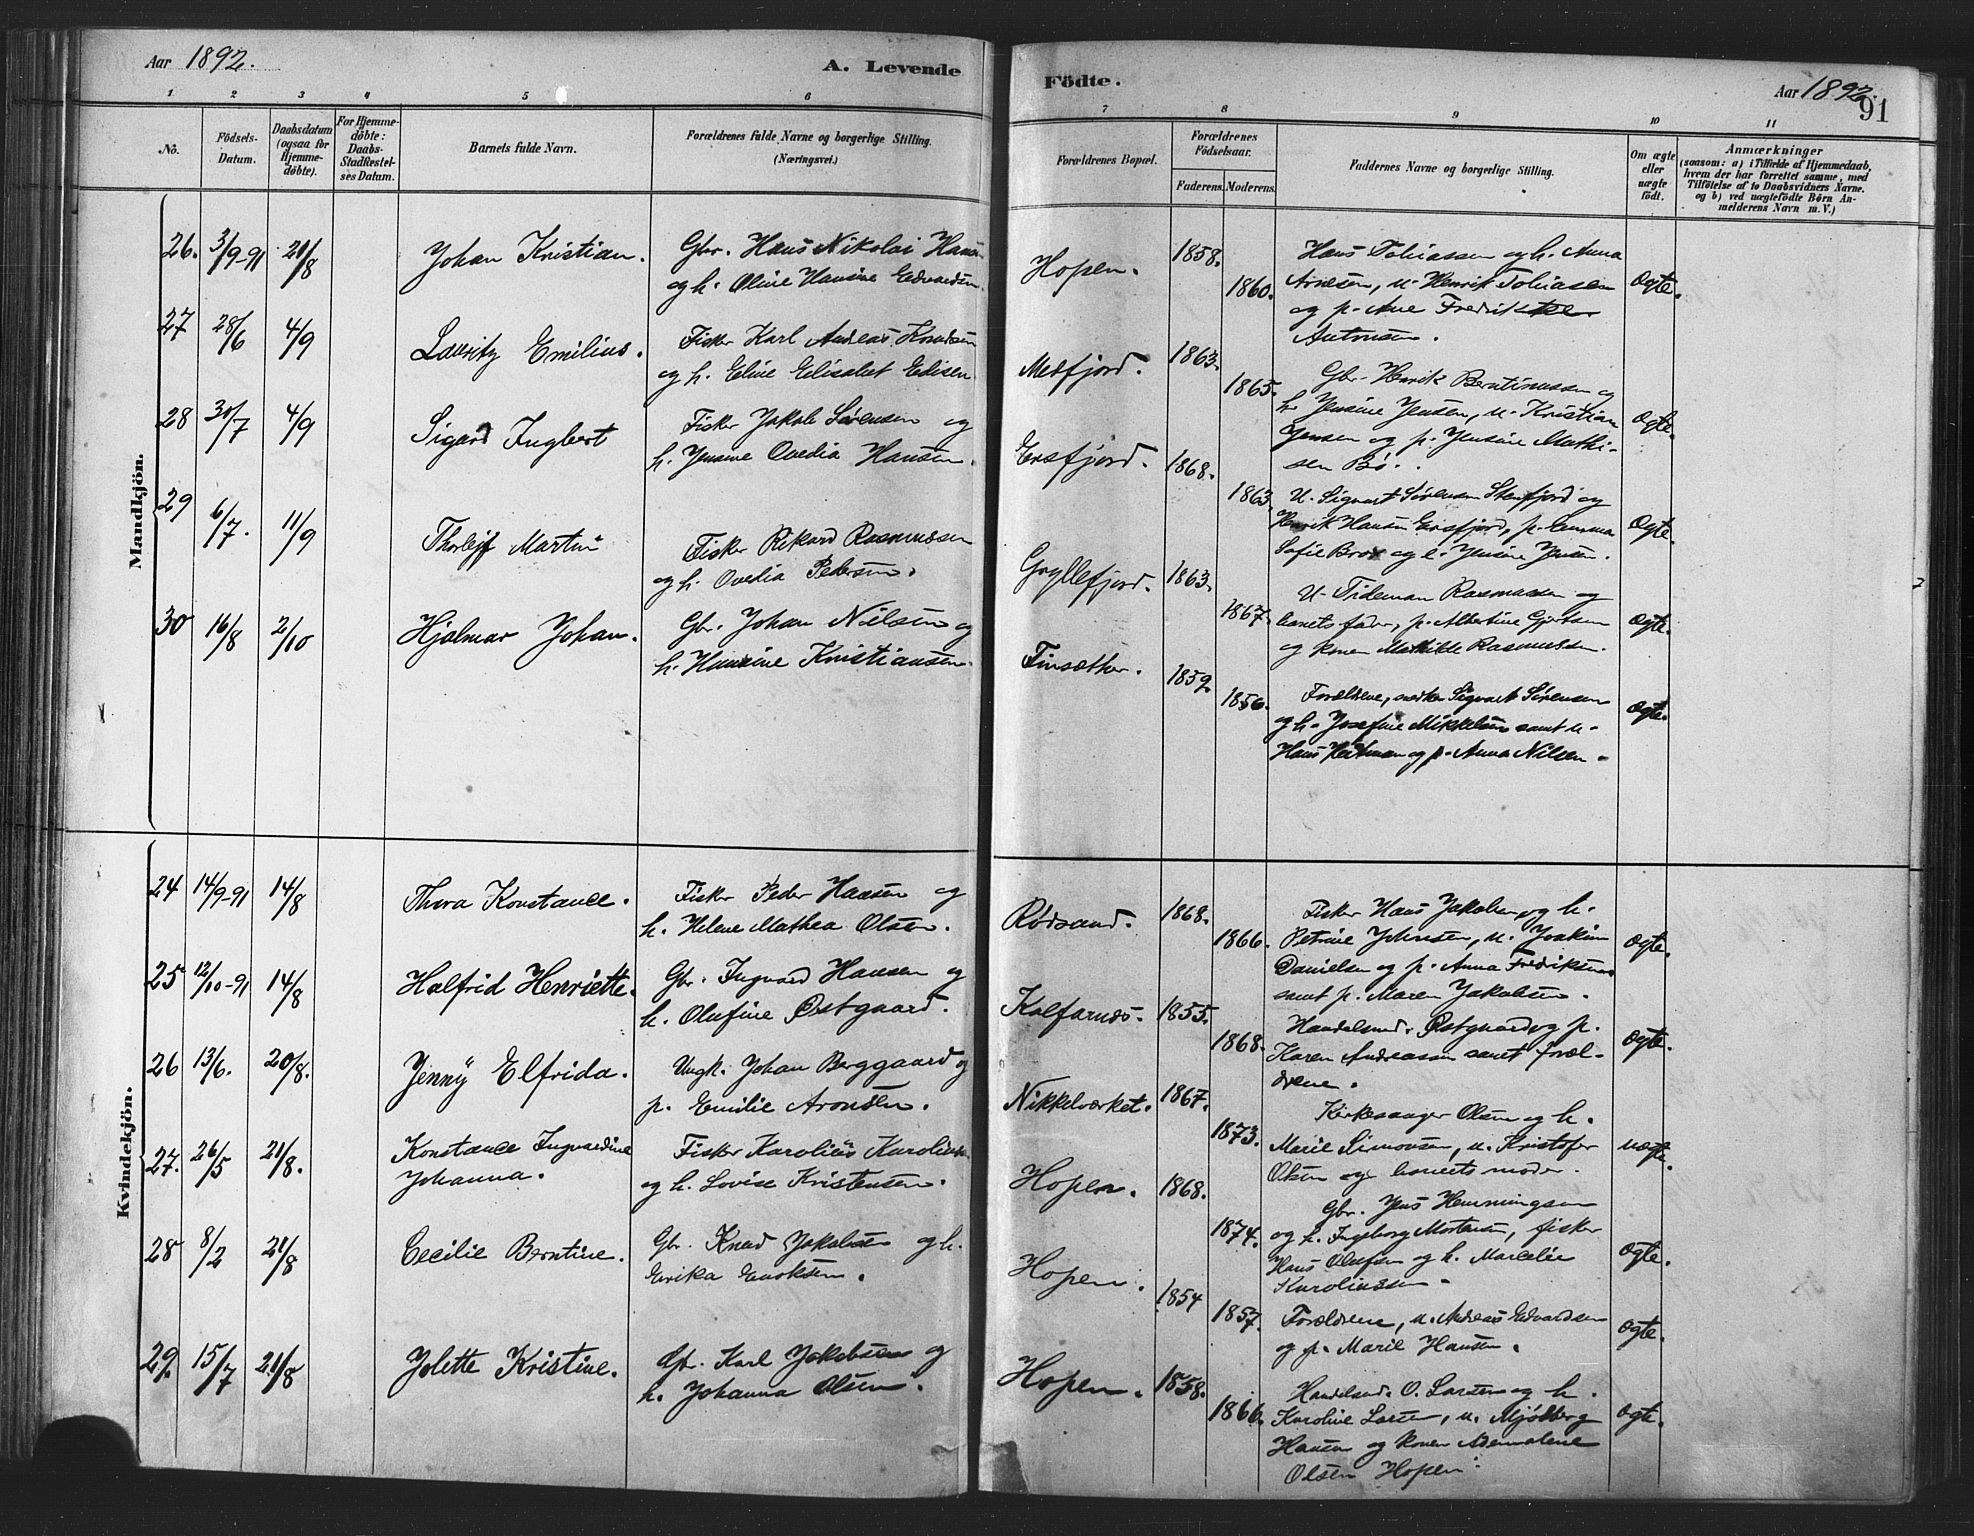 Aar 1892.
A. Levende
Födte.
Aar 1892.
91
1 2 3 4 5 6 7 8 9 10 11
No.
Födsels-
Datum.
Daabsdatum
(ogsaa for
Hjemme-
döbte).
For Hjemme-
döbte:
Daabs-
Stadfæstel-
ses Datum.
Barnets fulde Navn.
Forældrenes fulde Navne og borgerlige Stilling.
(Næringsvei.)
Forældrenes Bopæl.
Forældrenes
Födselsaar.
Faderens. Moderens.
Faddernes Navne og borgerlige Stilling.
Om ægte
eller
uægte
födt.
Anmærkninger
(saasom: a) i Tilfælde af Hjemmedaab,
hvem der har forrettet samme, med
Tilföielse af to Daabsvidners Navne,
og b) ved uægtefödte Börn An-
melderens Navn m. V.)
Mandkjön.
26. 3/9-91 21/8 Johan Kristian. Gbr. Hans Nikolai Hansen
og h. Oline Hansine Edvardsen.
Hopen. 1858. 1860.
Hans Tobiassen og h. Anna
Arnesen, u. Henrik Tobiasen
og p. Ane Fredrikke
Antonsen.
Ægte.
27 28/6 4/9 Lauritz Emilius. Fisker Karl Andreas Knudsen
og h. Eline Elisabet Edisen
Mefjord. 1863. 1865.
Gbr. Henrik Berntinussen og
h. Jensine Jensen, u. Kristian
Jensen og p. Jensine Mathi-
sen Bø.
Ægte.
28 30/7 4/9 Sigard Ingbert Fisker Jakob Sørensen og
h. Jensine Ovedia Hansen.
Ersfjord. 1868. 1863.
U. Sigvart Sørensen Stenfjord og
Henrik Hansen Ersfjord, p. Emma
Sofie Brox og e. Jensine Jensen.
Ægte.
29 6/7. 11/9 Thorleif Martin Fisker Rikard Rasmussen
og h. Ovedia Pedersen.
Gryllefjord. 1863. 1867.
U. Tideman Rasmussen og
barnets fader, p. Albertine Gjertsen
og konen Mathilde Rasmussen.
Ægte.
30 16/8 2/10 Hjalmar Johan. Gbr. Johan Nilsen og
h. Hansine Kristiansen.
Finsæther. 1859. 1856.
Forældrene, Sigvart Sørensen
og h. Josefine Mikkelsen samt u.
Hans og p. Anna Nilsen.
Ægte.
Kvindekjön.
24 14/9-91 14/8 Thora Konstance. Fisker Peder Hansen og
h. Helene Mathea Olsen.
Rødsand. 1868. 1866.
Fisker Hans Jakobsen og h.
Petrine Johnsen, u. Joakim
Danielsen og p. Anna Fredriksen
samt p. Maren Jakobsen.
Ægte.
25 12/10-91 14/8 Halfrid Henriette. Gbr. Ingvard Hansen og
h. Olufine Østgaard.
Kalfarnes. 1855. 1868.
Handelsmd. Østgaard og p.
Karen Andreassen samt foræl-
drene.
Ægte.
26 13/6. 20/8. Jenny Elfrida. Ungk. Johan Berggaard og
p. Emilie Aronsen.
Nikkelværket. 1867. 1873.
Kirkesanger Olsen og h.
Marie Simonsen, u. Kristofer
Olsen og barnets moder.
uægte.
27. 26/5 21/8. Konstance Ingvardine
Johanna.
Fisker Karolius Karoliussen
og h. Lovise Kristensen.
Hopen. 1868. 1874.
Gbr. Jens Hemmingsen
og h. Ingeborg Mortensen, fisker
Hans Olufsen og h. Marcelie
Karoliussen.
Ægte.
28 8/2 21/8 Cecilie Berntine. Gbr. Knud Jakobsen og h.
Erika Enoksen.
Hopen. 1854 1857.
Forældrene, u. Andreas Edvardsen
og p. Marie Hansen.
Ægte.
29. 15/7 21/8 Jolette Kristine. Gbr. Karl Jakobsen og
h. Johanna Olsen.
Hopen. 1858. 1866.
Handelsmd. O. Larsen og h.
Karoline Larsen, u. Mjølberg
Hansen og konen
Olsen Hopen.
Ægte.